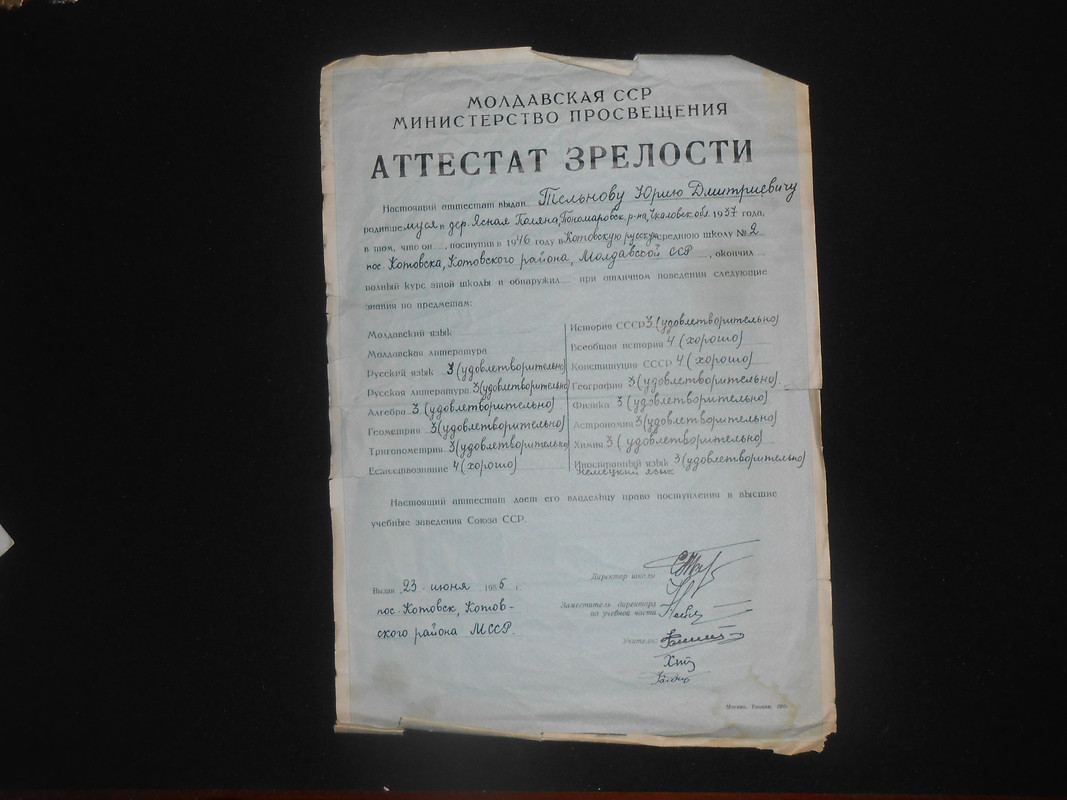 МОЛДАВСКАЯ ССР
МИНИСТЕРСТВО ПРОСВЕЩЕНИЯ
АТТЕСТАТ ЗРЕЛОСТИ
Настоящий аттестат выдан Тельнову Юрию Дмитриевичу
родившемуся в дер. Ясная Поляна, Пономаровск. р-на, Чкаловск. обл. 1937 года,
в том, что он , поступив в 1946 году в Котовскую русскую среднюю школу № 2
пос. Котовска, Котовского района, Молдавской ССР , окончил
полный курс этой школы и обнаружил при отличном поведении следующие
знания по предметам:
Молдавский язык
Молдавская литература
Русский язык 3 (удовлетворительно)
Русская литература 3 (удовлетворительно)
Алгебра 3 (удовлетворительно)
Геометрия 3 (удовлетворительно)
Тригонометрия 3 (удовлетворительно)
Естествознание 4 (хорошо)
История СССР 3 (удовлетворительно)
Всеобщая история 4 (хорошо)
Конституция СССР 4 (хорошо)
География 3 (удовлетворительно).
Физика 3 (удовлетворительно)
Астрономия 3 (удовлетворительно)
Химия 3 (удовлетворительно)
Иностранный язык 3 (удовлетворительно)
немецкий язык
Настоящий аттестат дает его владельцу право поступления в высшие
учебные заведения Союза ССР.
Выдан 23 июня 1956 г.
пос. Котовск, Котов-
ского района МССР.
Директор школы
Заместитель директора
по учебной части
Учителя:
Москва, Гознак, 195